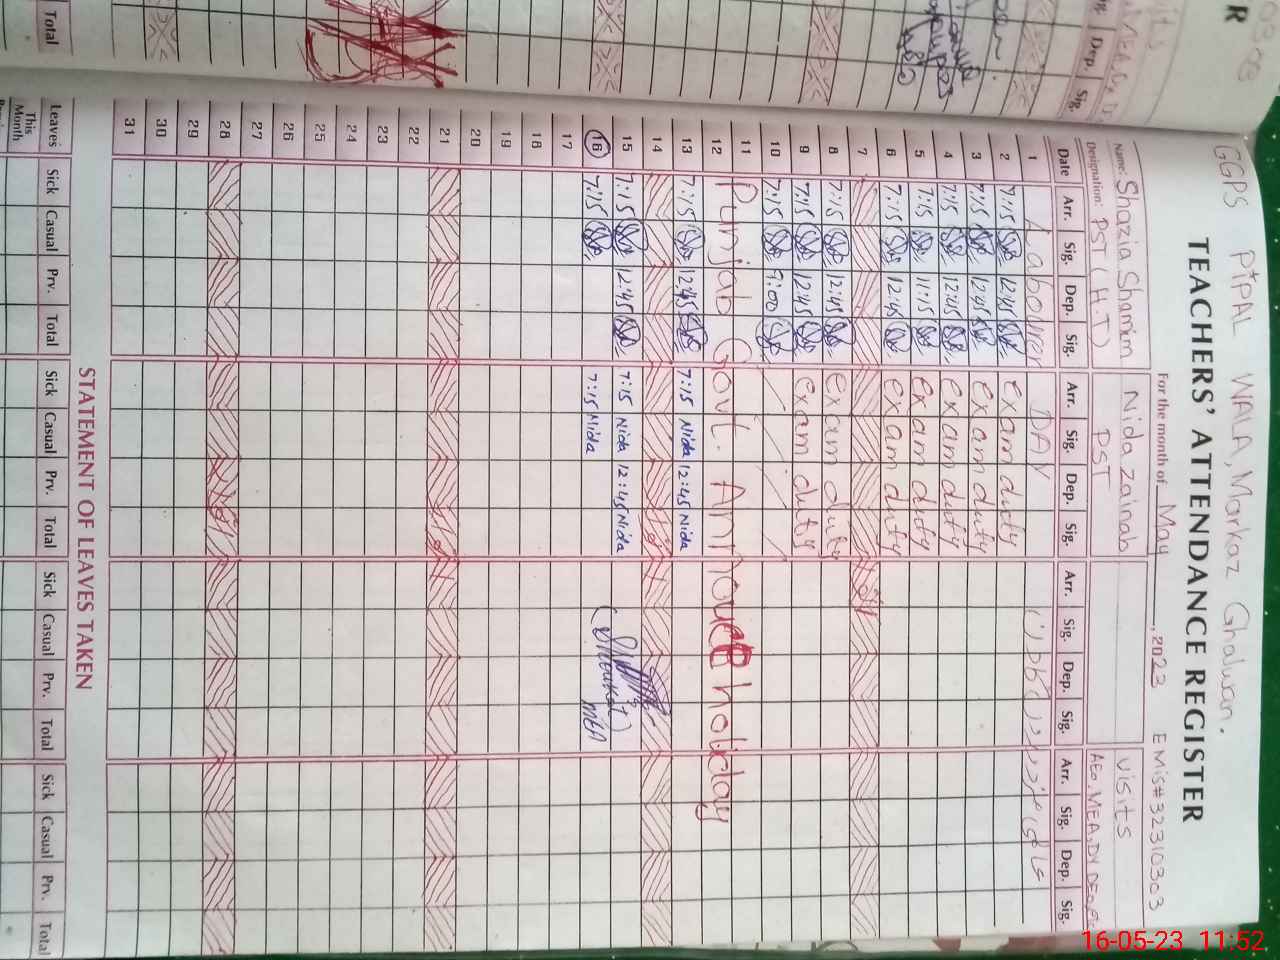 GGPS PIPAL WALA, Markaz Ghalwan.
TEACHERS' ATTENDANCE REGISTER
For the month of May, 2023 EMIS#32310303
Name: Shazia Shamim Nida Zainab visits
Designation: PST (H.T) PST AEO, MEA, DY DEO,
Date Arr. Sig. Dep. Sig. Arr. Sig. Dep. Sig. Arr. Sig. Dep. Sig. Arr. Sig. Dep. Sig.
1 Labourer DAY
2 7:15 12:45 exam duty
3 7:15 12:45 exam duty
4 7:15 12:45 exam duty
5 7:15 11:15 exam duty
6 7:15 12:45 exam duty
7
8 7:15 12:45 exam duty
9 7:15 12:45 exam duty
10 7:15 9:00
11
12 Punjab Govt. Annouce holiday
13 7:15 12:45 7:15 Nida 12:45 Nida
14
15 7:15 12:45 7:15 Nida 12:45 Nida
16 7:15 7:15 Nida (Shoukat) MEA
17
18
19
20
21
22
23
24
25
26
27
28
29
30
31
STATEMENT OF LEAVES TAKEN
Leaves Sick Casual Prv. Total Sick Casual Prv. Total Sick Casual Prv. Total Sick Casual Prv. Total
This Month
R
Dep. Sig.
Total
16-05-23 11:52